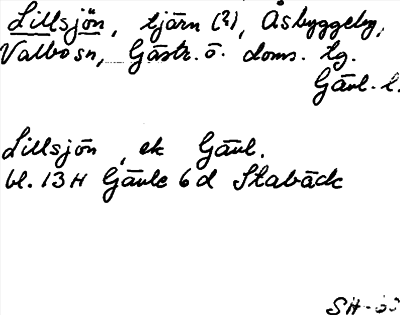 Lillsjön, tjärn (?), Åsbyggeby,
Valbo sn, Gästr. ö. doms. lg.
Gävl. l.
Lillsjön, ek Gävl.
bl. 13 H Gävle 6 d Stabäck
SH